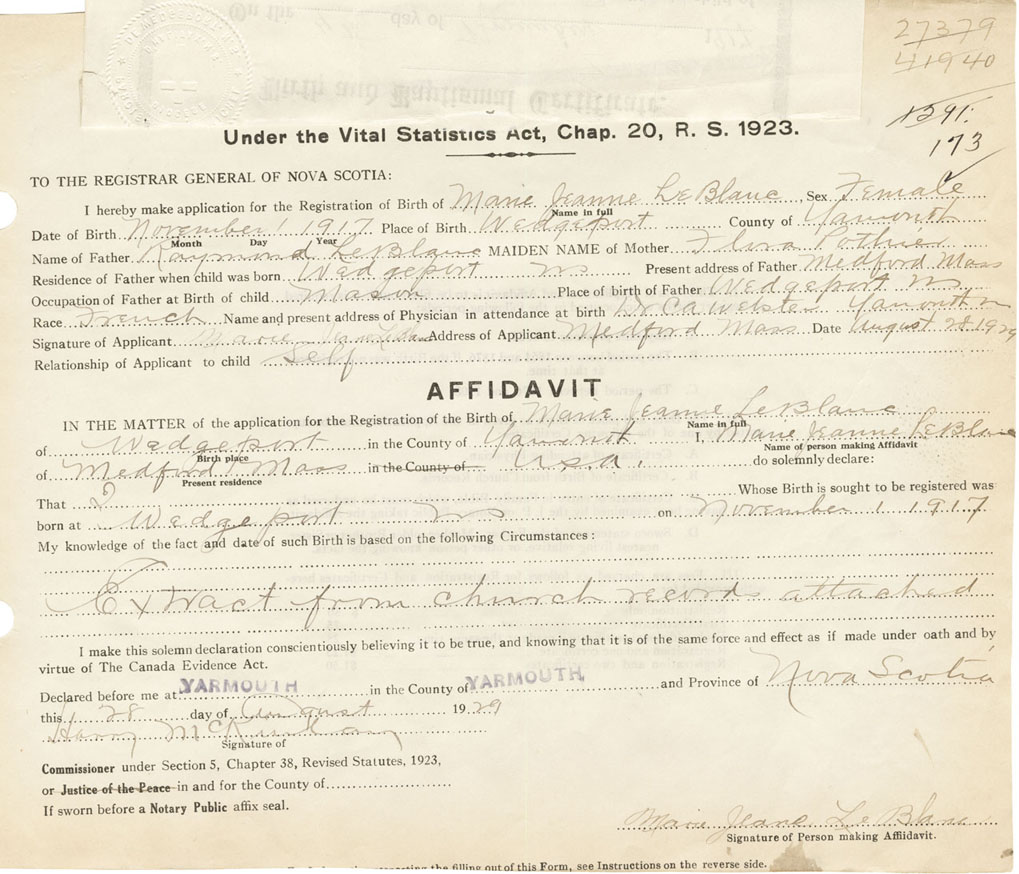 On the day of
Birth and Baptismal Certificate.
27379
41940
1391.
173
Under the Vital Statistics Act, Chap. 20, R. S. 1923.
TO THE REGISTRAR GENERAL OF NOVA SCOTIA:
I hereby make application for the Registration of Birth of Marie Jeanne LeBlanc Sex Female
Name in full
Date of Birth November 1 1917 Place of Birth Wedgeport County of Yarmouth
Month Day Year
Name of Father Raymond LeBlanc MAIDEN NAME of Mother Flora Pothier
Residence of Father when child was born Wedgeport NS Present address of Father Medford Mass
Occupation of Father at Birth of child Mason Place of birth of Father Wedgeport NS.
Race French Name and present address of Physician in attendance at birth Dr CA Webster Yarmouth
Signature of Applicant Marie Address of Applicant Medford Mass Date August 28 1929
Relationship of Applicant to child Self
AFFIDAVIT
IN THE MATTER of the application for the Registration of the Birth of Marie Jeanne LeBlanc
Name in full
of Wedgeport in the County of Yarmouth I, Marie Jeanne LeBlanc
Birth place Name of person making Affidavit
of Medford Mass in the County of U.S.A. do solemnly declare:
Present residence
That I Whose Birth is sought to be registered was
born at Wedgeport NS on November 1 1917
My knowledge of the fact and date of such Birth is based on the following Circumstances :
Extract from church records attached
I make this solemn declaration conscientiously believing it to be true, and knowing that it is of the same force and effect as if made under oath and by
virtue of The Canada Evidence Act.
Declared before me at YARMOUTH in the County of YARMOUTH and Province of Nova Scotia
this 28 day of August 1929
Harry
Signature of
Commissioner under Section 5, Chapter 38, Revised Statutes, 1923,
or Justice of the Peace in and for the County of
If sworn before a Notary Public affix seal.
Marie Jeane LeBlanc
Signature of Person making Affidavit.
the filling out of this Form, see Instructions on the reverse side.